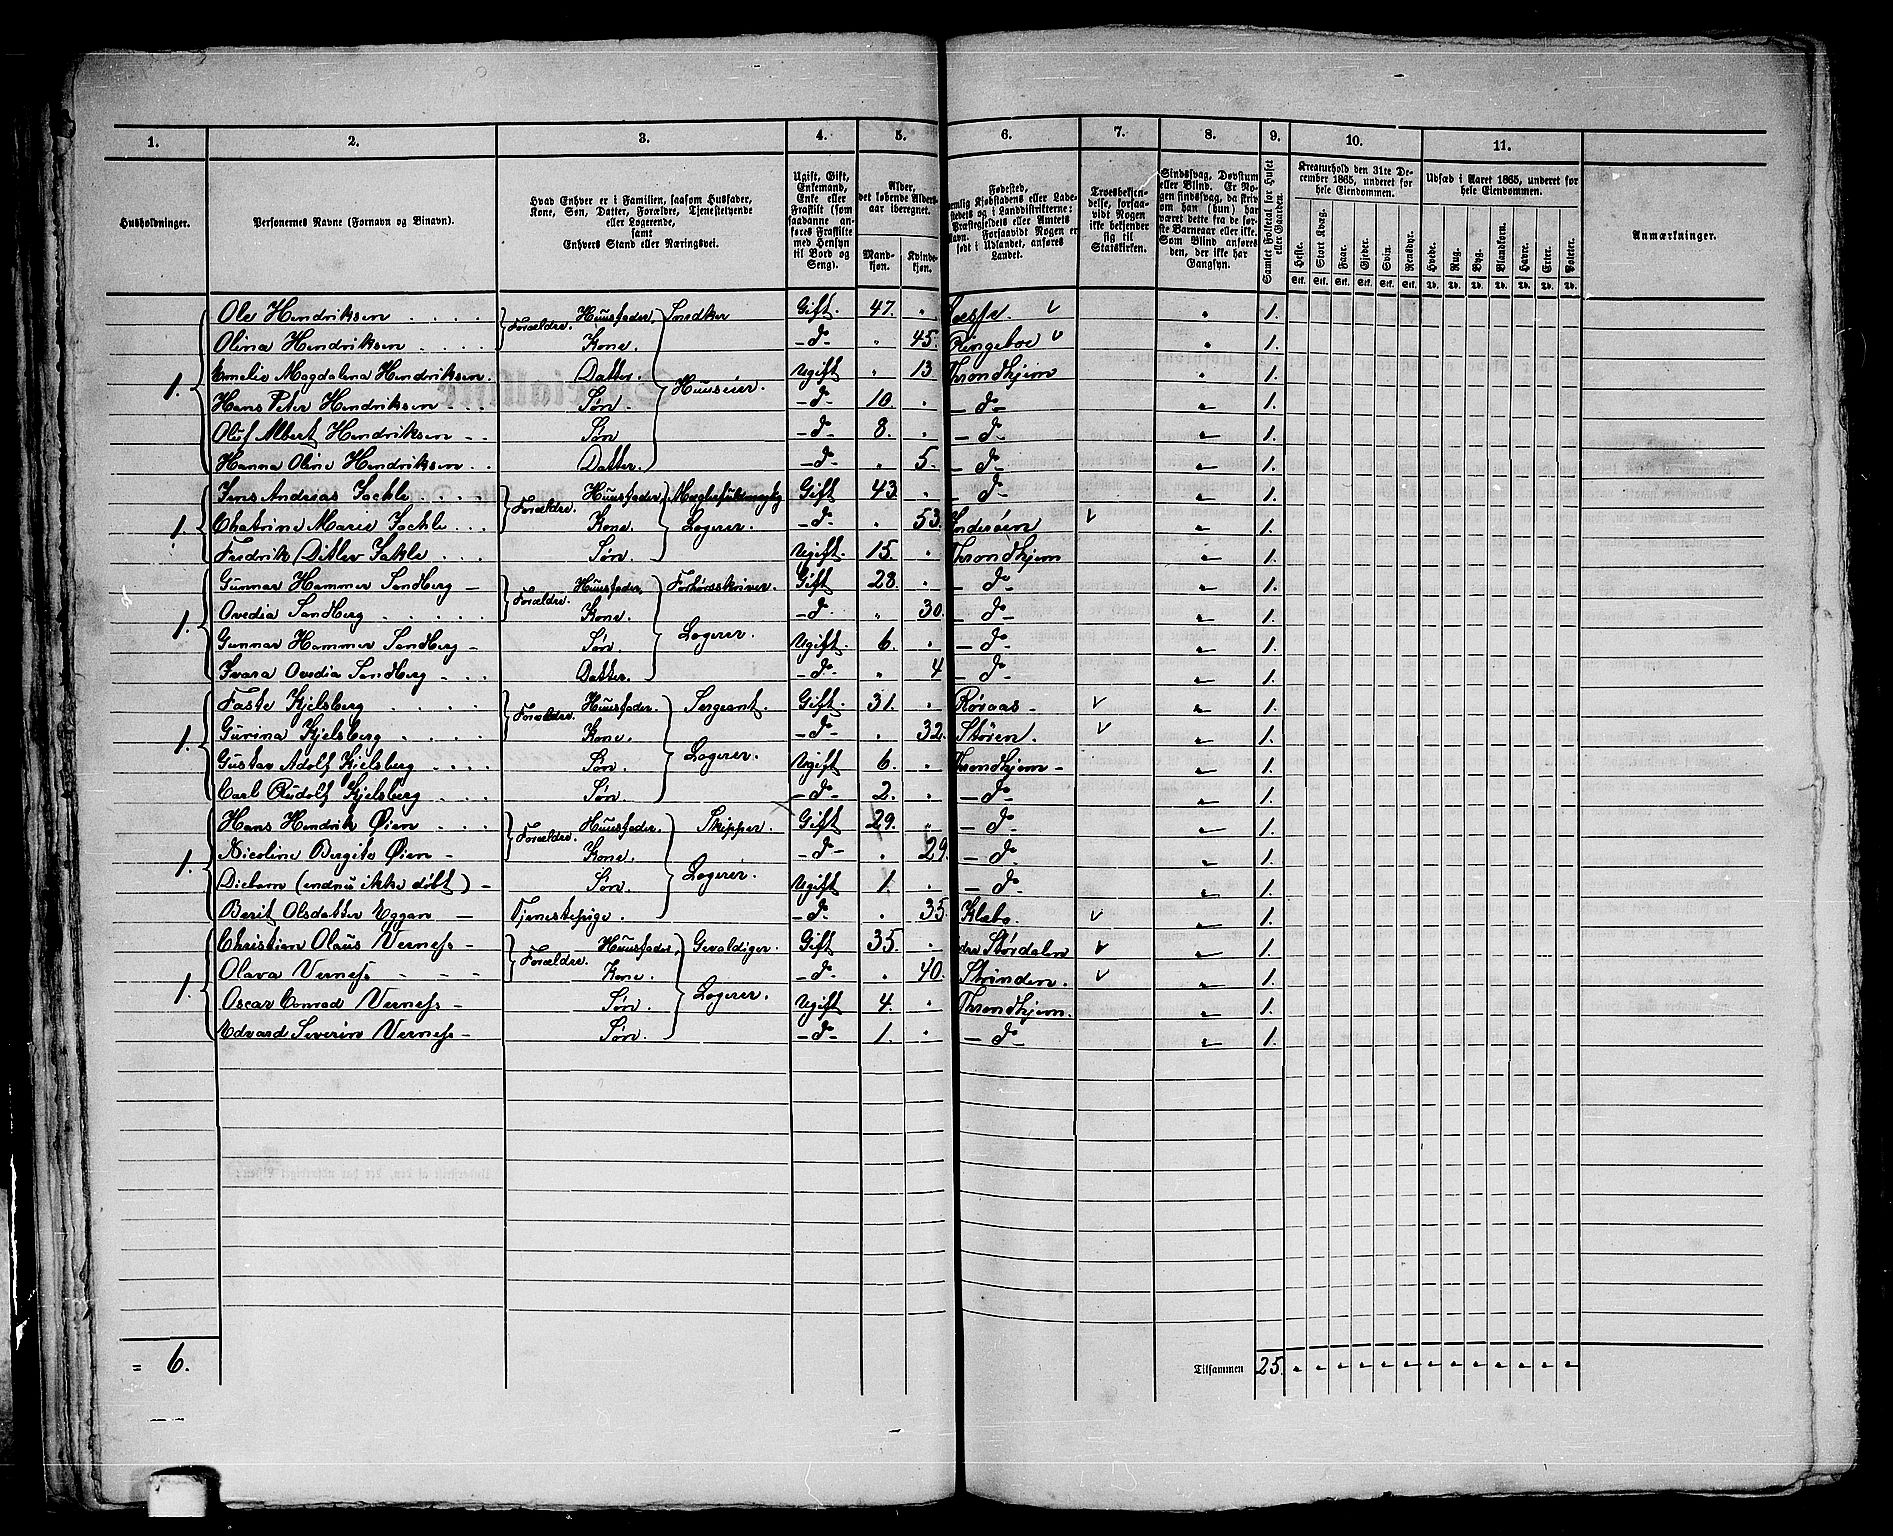 1. 2. 3. 4. 5. 6. 7. 8. 9. 10. 11.
Husholdninger. Personernes Navne (Fornavn og Binavn). Hvad Enhver er i Familien, saasom Husfader, Kone, Søn, Datter, Forældre, Tjenestetyende eller Logerende, samt Enhvers Stand eller Næringsvei. Ugift, Gift, Enkemand, Enke eller Fraskilt (som saadanne anføres Fraskilte med Hensyn til Bord og Seng). Alder, det løbende Alders-aar iberegnet. Mandkjøn. Kvindekjøn. Fødested, Kjøbstadens eller Ladestedets og i Landdistrikterne: Præstegjeldets eller Amtets Navn. Forsaavidt Nogen er født i Udlandet, anføres Landet. Troesbekjendelse, forsaavidt Nogen ikke bekjender sig til Statskirken. Sindssvag, Døvstum eller Blind. Er Nogen sindssvag, da skriv om han (hun) har været dette fra de første Barneaar eller ikke. Som Blind anføres den, der ikke har Gangsyn. Samlet Folketal for Huset eller Gaarden. Kreaturhold den 31te December 1865, underet for hele Eiendommen. Udsæd i Aaret 1865, underet for hele Eiendommen. Anmærkninger.
Heste. Stort Kvæg. Faar. Gjeder. Svin. Rensdyr. Hvede. Rug. Byg. Blandkorn. Havre. Erter. Poteter.
Stk. Stk. Stk. Stk. Stk. Stk. Td. Td. Td. Td. Td. Td. Td.
Ole Hendriksen . . . . Forældre. Huusfader. Gift. 47. " " 1.
Olina Hendriksen . . . . Kone. -d- " 45. Ringeboe v 1.
1. Amelie Magdalena Hendriksen. Datter. Ugift " 13 Throndhjem " 1.
Hans Peter Hendriksen . . . Søn. Huuseier. -d- 10. " -d- " 1.
Oluf Albert Hendriksen - . Søn -d- 8. " -d- " 1.
Hanna Oline Hendriksen . . Datter. -d- " 5. -d- " 1.
Jens Andreas . . . Forældre. Huusfader, Gift 43. " -d- " 1.
1. Chatrine Marie . . . Kone. Logerer. -d- " 53. Inderøen v " 1.
Fredrik Ditlev . . . Søn. Ugift. 15. " Throndhjem " 1.
Gunnar Hammer Sandberg - Forældre. Huusfader, Forhørsskriver. Gift 28. " -d- " 1.
1. Ovedia Sandberg . . . . . Kone. -d- " 30. -d- " 1.
Gunnar Hammer Sandberg - Søn. Logerer. Ugift. 6. " -d- " 1.
Ovedia Sandberg . . . Datter. -d- " 4 -d- " 1.
Faste Kjelsberg . . . . Forældre. Huusfader. Sergeant. Gift. 31. " Røraas - v " 1.
1. Gurina Kjelsberg . . . . Kone. -d- " 32. Støren. v " 1.
Gustav Adolf Kjelsberg . . . . Søn. Logerer. Ugift 6. " Throndhjem - " 1.
Carl Rudolf Kjelsberg . . . Søn. -d- 2. " -d- " 1.
Hans Hendrik Øien . . . Forældre. Huusfader. Skipper. Gift 29. " -d- " 1.
1. Nicoline Bergite Øien - Kone. -d- " 29. -d- " 1.
Diebarn (endnu ikke døbt) - Søn. Logerer. Ugift 1. " -d- " 1.
Berit Olsdatter Eggan - Tjenestepige. -d- " 35. Klæbo. v " 1.
Christian Olaus Verness - Forældre. Huusfader, Gevaldiger. Gift 35. " Størdalen v " 1.
1. Olava Verness - - - Kone. -d- " 40. Strinden. v " 1.
Oscar Conrad Verness - Søn. Logerer. Ugift 4. " Throndhjem. " 1.
Edvard Severin Verness - Søn. -d- 1. " -d- " 1.
= 6. Tilsammen 25. " " " " " " " " " " " " "